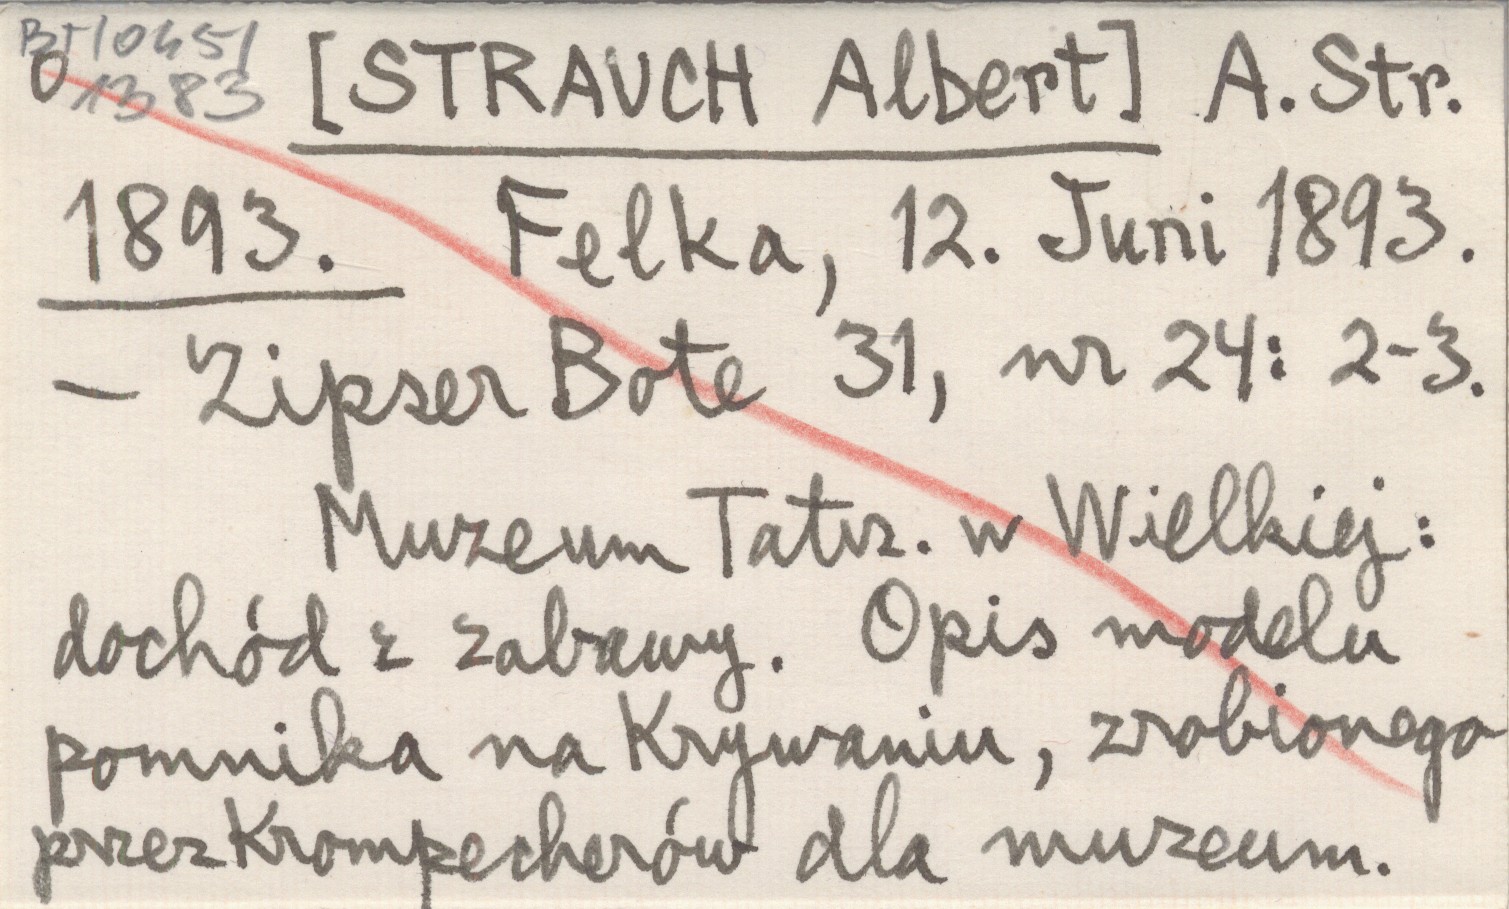 BT/045/
1383
o [STRAUCH Albert] A. Str.
1893. Felka, 12. Juni 1893.
– Zipser Bote 31, nr 24: 2-3.
Muzeum Tatrz. w Wielkiej:
dochód z zabawy. Opis modelu
pomnika na Krywaniu, zrobionego
przez Krompecherów dla muzeum.